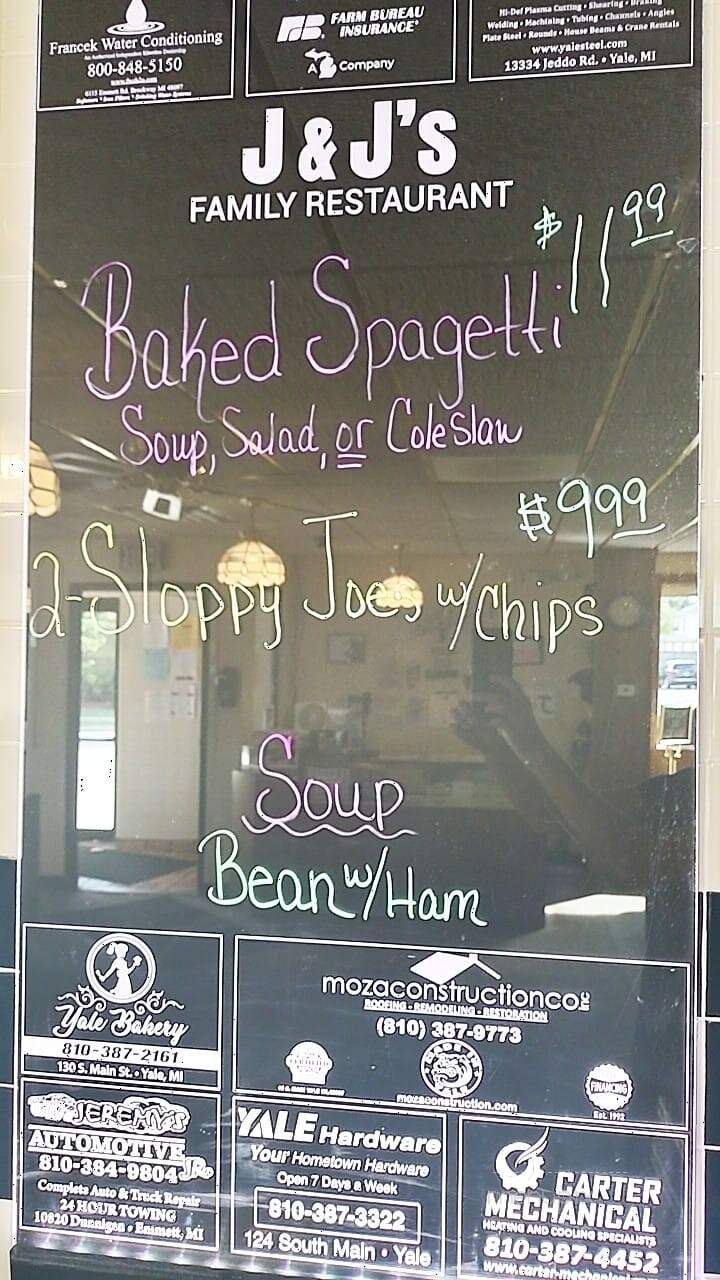 Francek Water Conditioning
800-848-5150
FARM BUREAU
INSURANCE
A Company
Hi-Def Plasma Cutting • Shearing •
Welding • Machining • Tubing • Channels • Angles
Plate Steel • Rounds • House Beams & Crane Rentals
www.yalesteel.com
13334 Jeddo Rd. • Yale, MI
J & J's
FAMILY RESTAURANT
$11.99
Baked Spagetti
Soup, Salad, or Coleslaw
$9.99
2-Sloppy Joes w/Chips
Soup
Bean w/Ham
Yale Bakery
810-387-2161
130 S. Main St. • Yale, MI
mozaconstructionco inc
ROOFING - REMODELING - RESTORATION
(810) 387-9773
FINANCING
Est. 1992
mozaconstruction.com
JEREMY'S
AUTOMOTIVE JR.
810-384-9804
Complete Auto & Truck Repair
24 HOUR TOWING
10820 Dunnigan • Emmett, MI
YALE Hardware
Your Hometown Hardware
Open 7 Days a Week
810-387-3322
124 South Main • Yale
CARTER
MECHANICAL
HEATING AND COOLING SPECIALISTS
810-387-4452